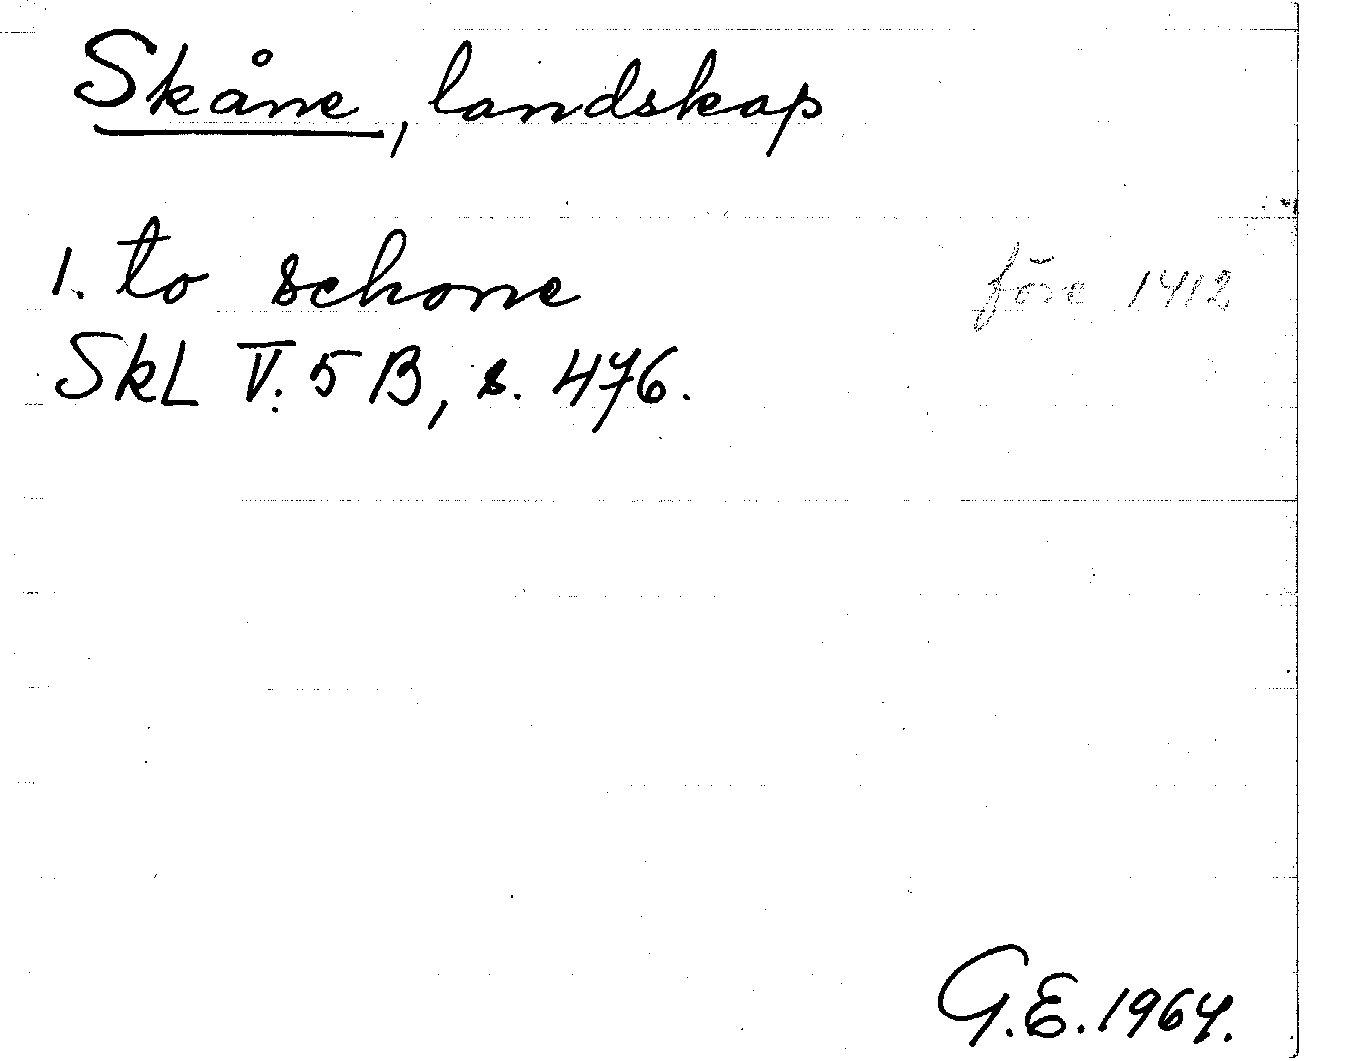 Skåne, landskap
1. to schone före 1412
SkL V:5 B, s. 476.
G.E. 1964.